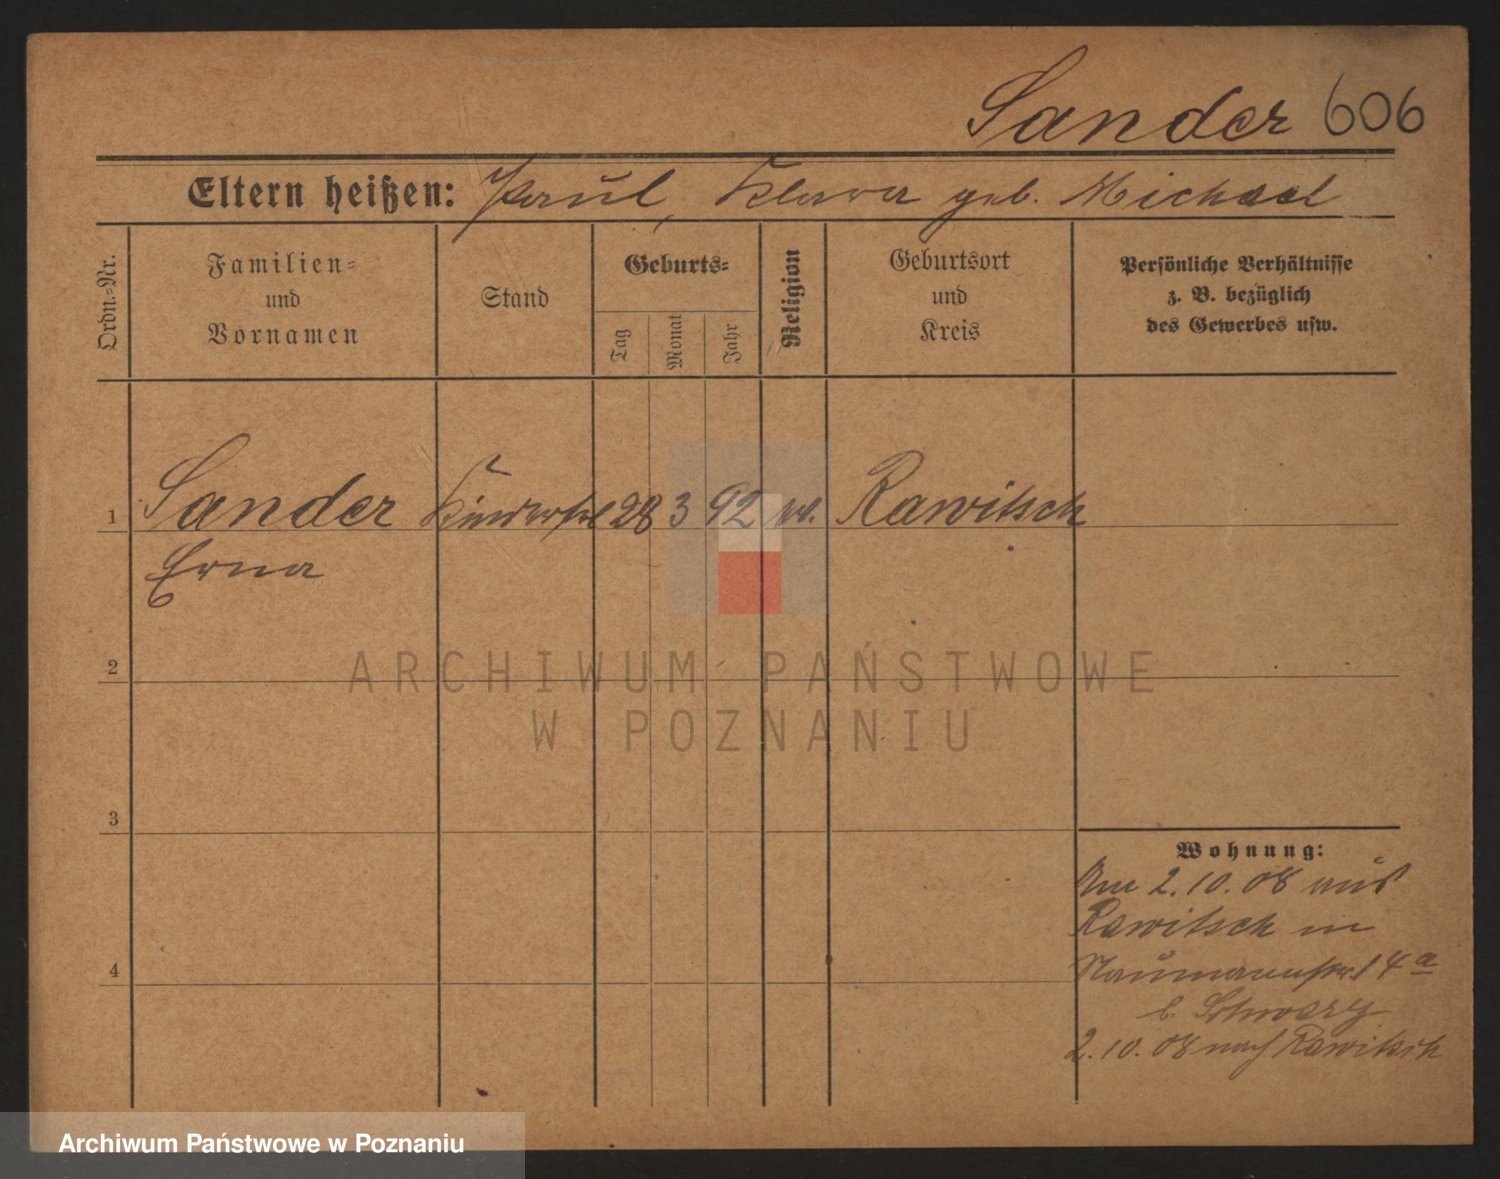 Sander 606
Eltern heißen: Paul, Klara geb. Michael
Ordn.-Nr.
Familien-
und
Vornamen
Stand
Geburts-
Tag
Monat
Jahr
Religion
Geburtsort
und
Kreis
Persönliche Verhältnisse
z. B. bezüglich
des Gewerbes usw.
1 Sander 28 3 92 Rawitsch
Erna
2
3
4
Wohnung:
2.10.08 aus
Rawitsch in
Naumannstr. 14 a
b. Schwarz
2.10.08 nach Rawitsch
ARCHIWUM PAŃSTWOWE
W POZNANIU
Archiwum Państwowe w Poznaniu